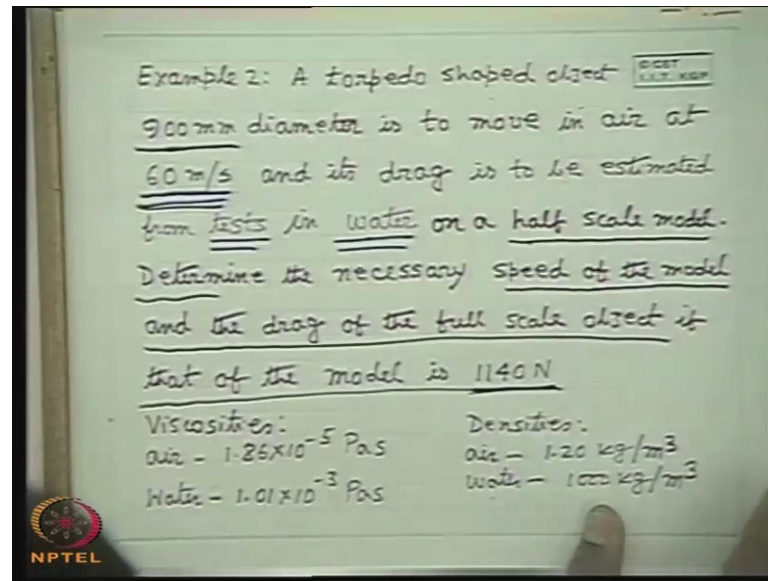 Example 2: A torpedo shaped object
© CET
I.I.T. KGP
900mm diameter is to move in air at
60 m/s and its drag is to be estimated
from tests in water on a half scale model.
Determine the necessary speed of the model
and the drag of the full scale object if
that of the model is 1140 N
Viscosities:
air - 1.86×10⁻⁵ Pas
Water - 1.01×10⁻³ Pas
Densities:
air - 1.20 kg/m³
water - 1000 kg/m³
NPTEL